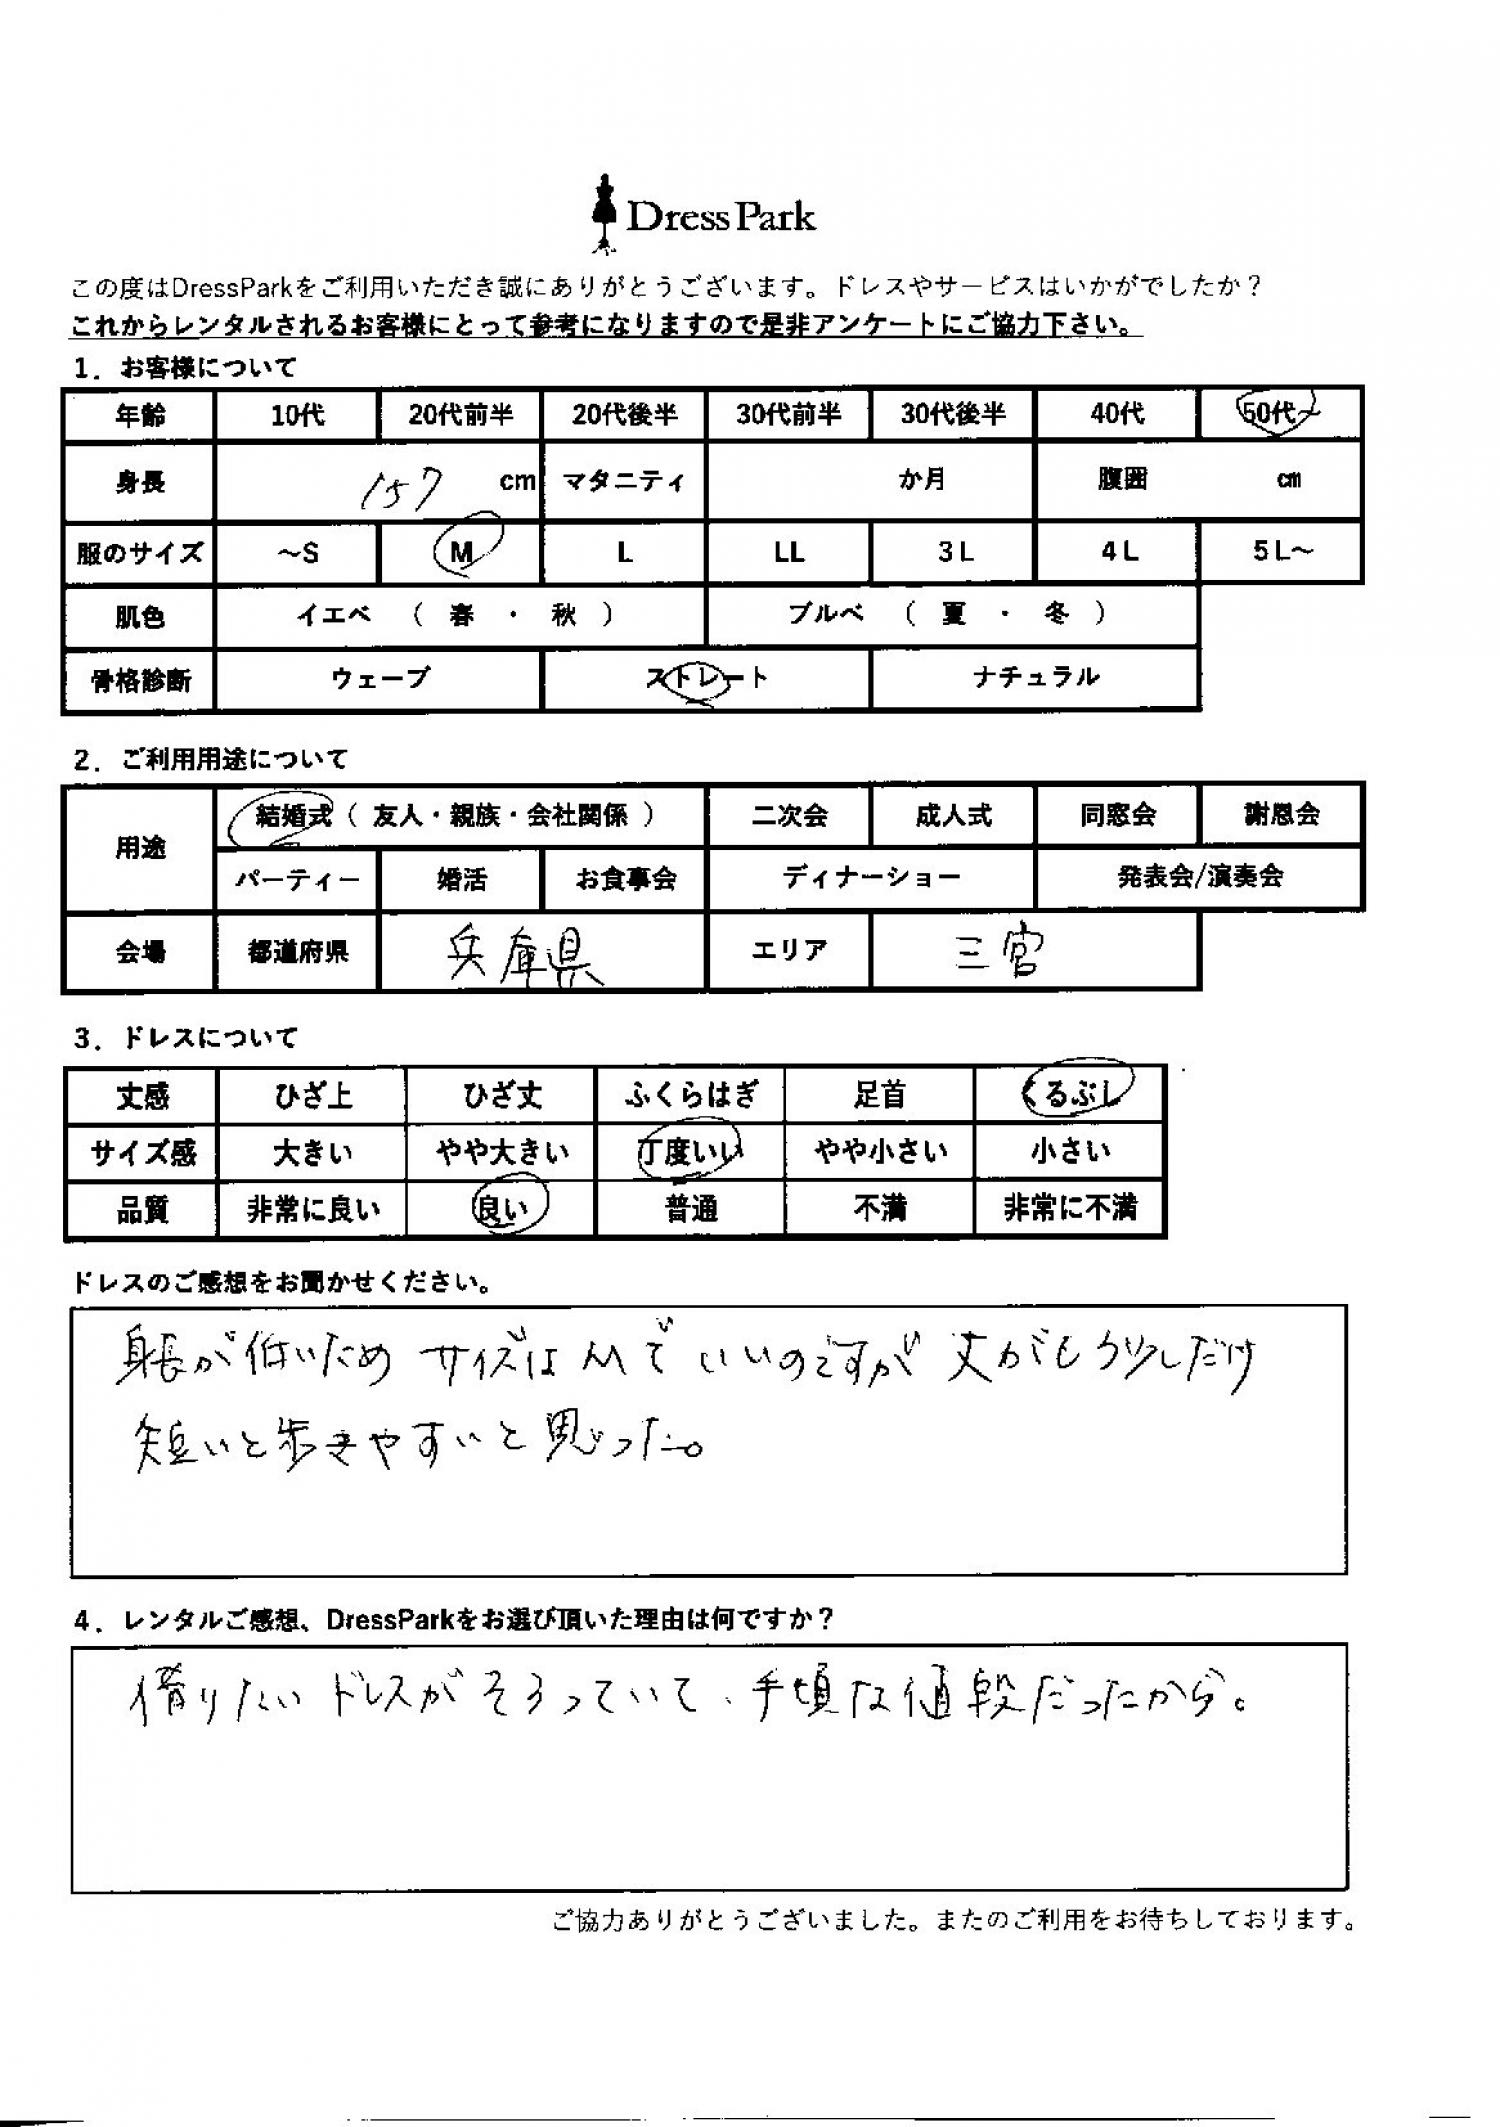 Dress Park
この度はDressParkをご利用いただき誠にありがとうございます。ドレスやサービスはいかがでしたか？
これからレンタルされるお客様にとって参考になりますので是非アンケートにご協力下さい。
1．お客様について
年齢 10代 20代前半 20代後半 30代前半 30代後半 40代 50代～
身長 157 cm マタニティ か月 腹囲 cm
服のサイズ ～S M L LL 3L 4L 5L～
肌色 イエベ （ 春 ・ 秋 ） ブルベ （ 夏 ・ 冬 ）
骨格診断 ウェーブ ストレート ナチュラル
2．ご利用用途について
用途 結婚式（ 友人・親族・会社関係 ） 二次会 成人式 同窓会 謝恩会
パーティー 婚活 お食事会 ディナーショー 発表会/演奏会
会場 都道府県 兵庫県 エリア 三宮
3．ドレスについて
丈感 ひざ上 ひざ丈 ふくらはぎ 足首 くるぶし
サイズ感 大きい やや大きい 丁度いい やや小さい 小さい
品質 非常に良い 良い 普通 不満 非常に不満
ドレスのご感想をお聞かせください。
身長が低いため サイズはMでいいのですが 丈がもう少しだけ
短いと歩きやすいと思った。
4．レンタルご感想、DressParkをお選び頂いた理由は何ですか？
借りたいドレスがそろっていて、手頃な値段だったから。
ご協力ありがとうございました。またのご利用をお待ちしております。